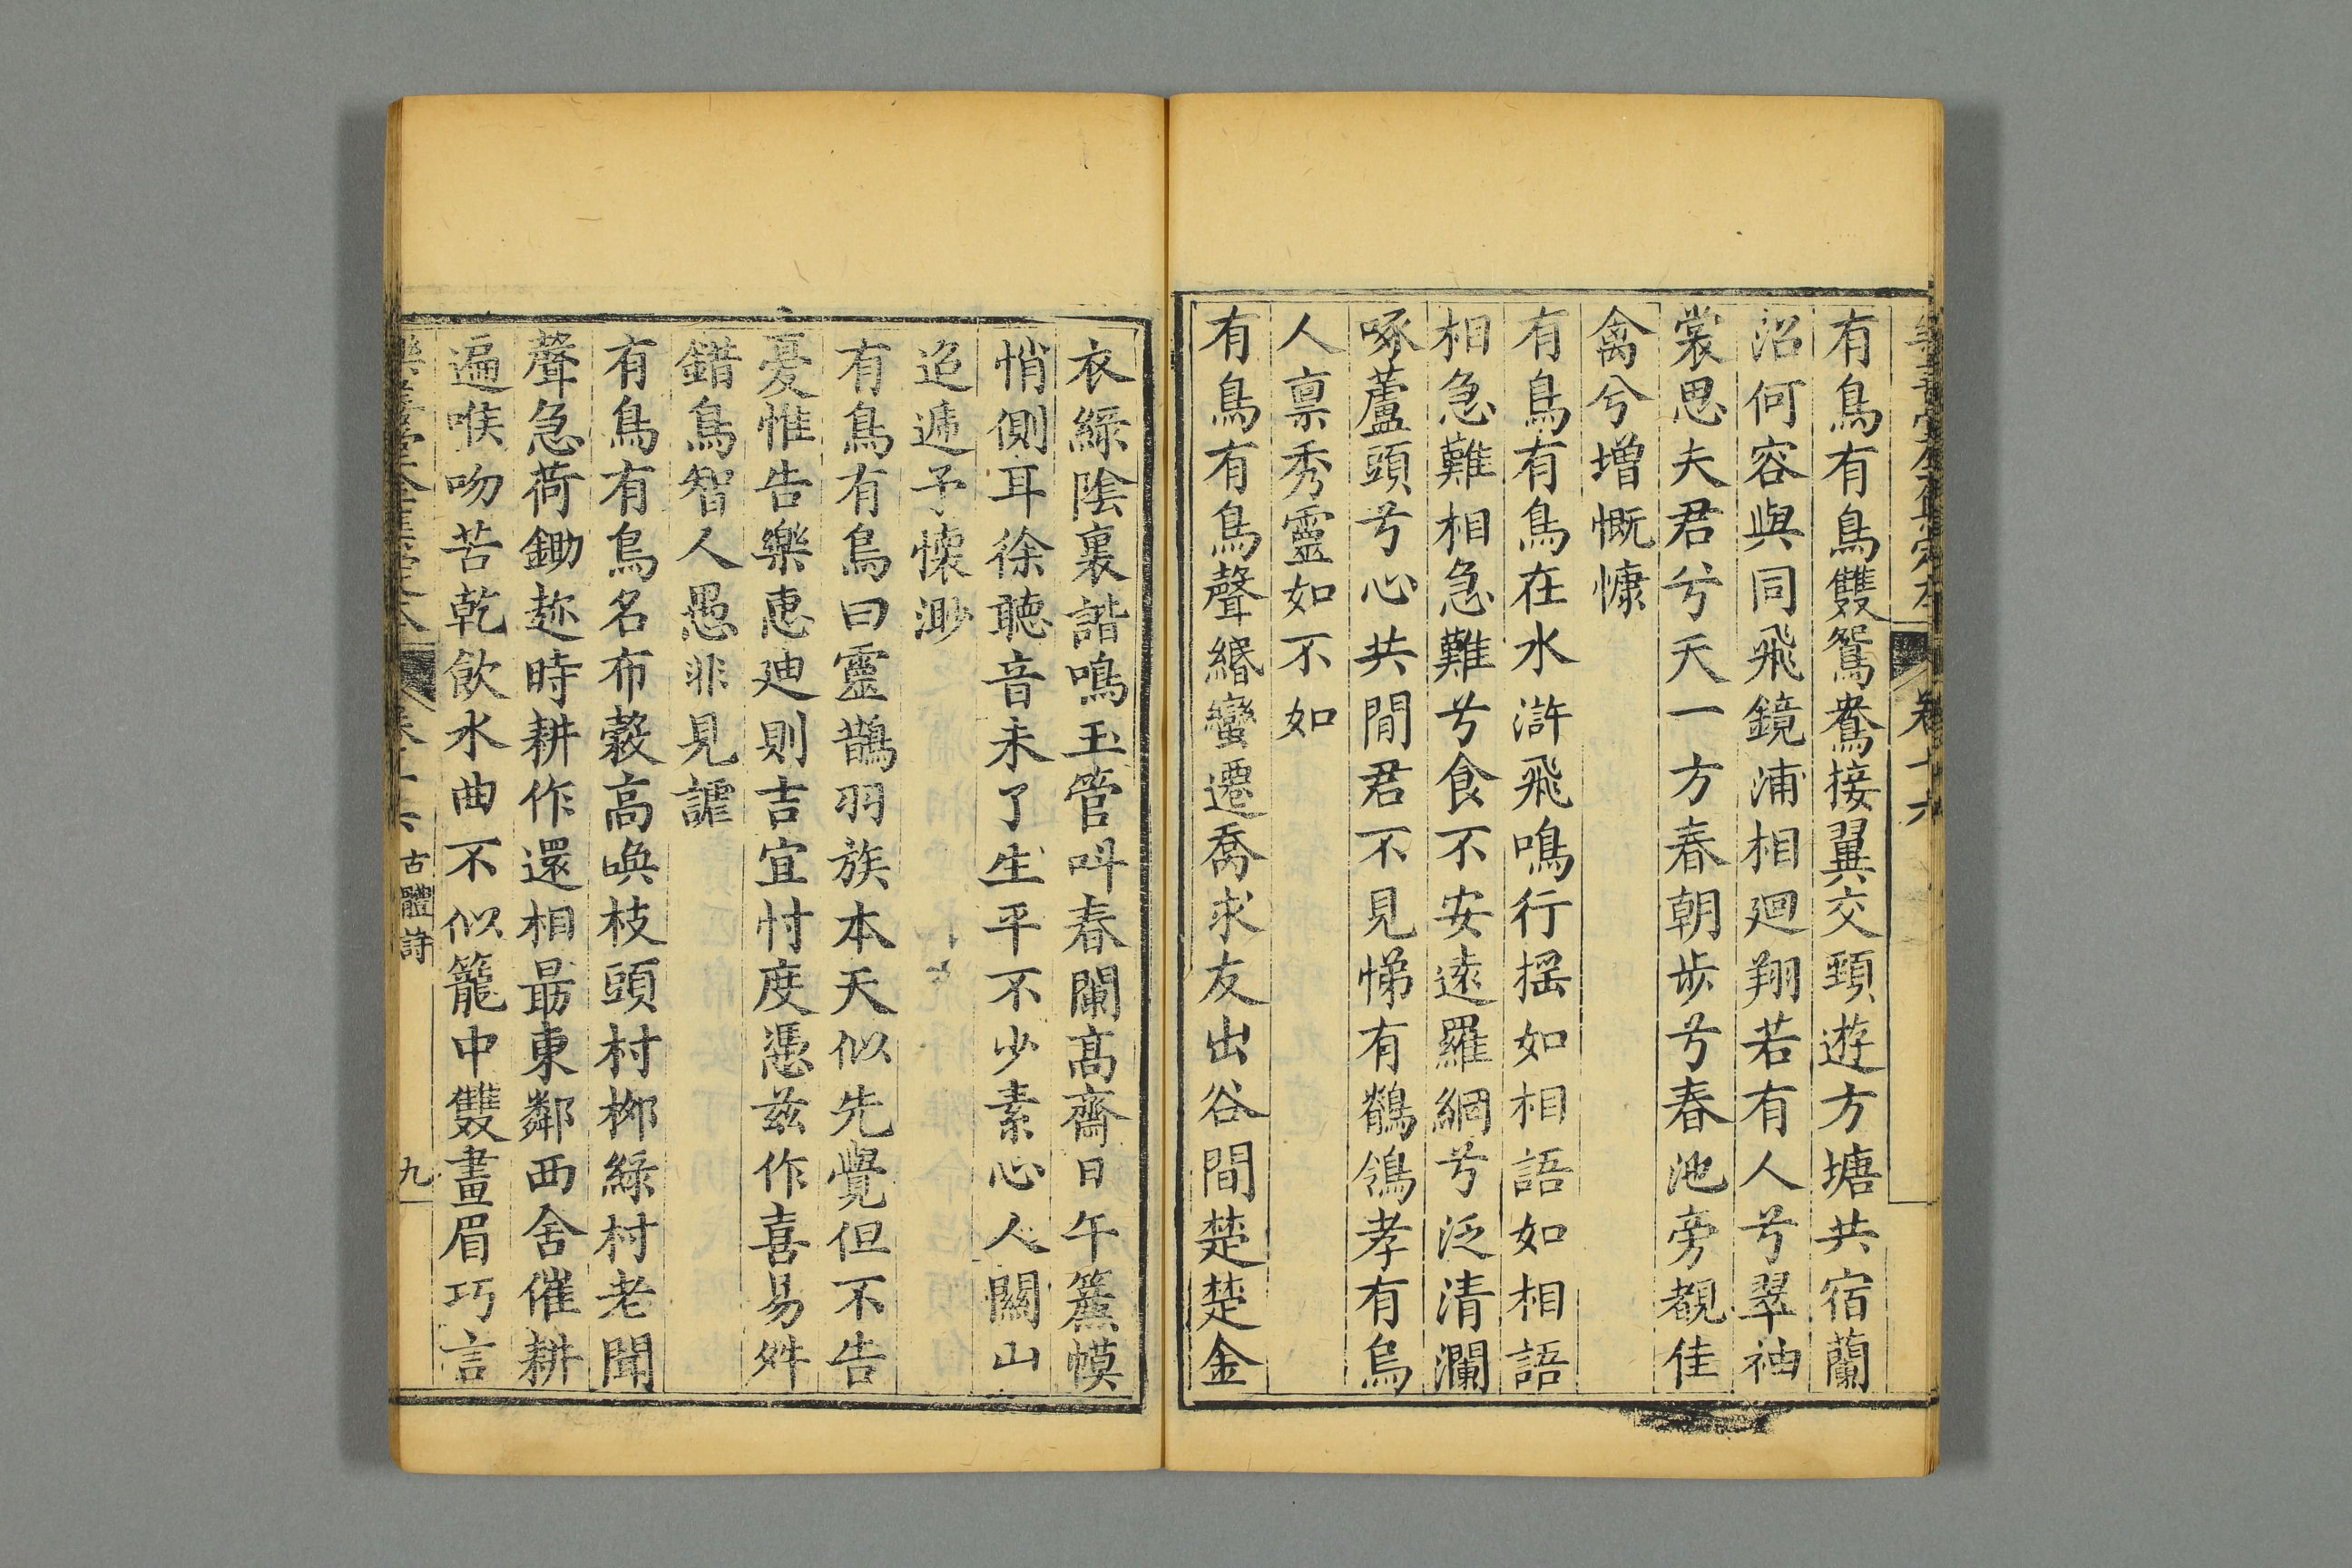 有鳥有鳥雙鴛鴦接翼交頸遊方塘共宿蘭
沼何容與同飛鏡浦相廻翔若有人兮翠袖
裳思夫君兮天一方春朝步兮春池旁覩佳
禽兮增慨慷
有鳥有鳥在水滸飛鳴行搖如相語如相語
相急難相急難兮食不安遠羅網兮泛清瀾
啄蘆頭兮心共閒君不見悌有鶺鴒孝有烏
人禀秀靈如不如
有鳥有鳥聲緡蠻遷喬求友出谷間楚楚金
衣綠陰裏諧鳴玉管呌春闌髙齋日午簾幙
悄側耳徐聽音未了生平不少素心人關山
迢遞予懷渺
有鳥有鳥曰靈鵲羽族本天似先覺但不告
憂惟告樂惠廸則吉宜忖度憑兹作喜易舛
錯鳥智人愚非見謔
有鳥有鳥名布糓高喚枝頭村栁綠村老聞
聲急荷鋤趂時耕作還相朂東鄰西舍催耕
遍喉吻苦乾飲水曲不似籠中雙畫眉巧言
樂善堂全集定本 卷十六 古體詩 九